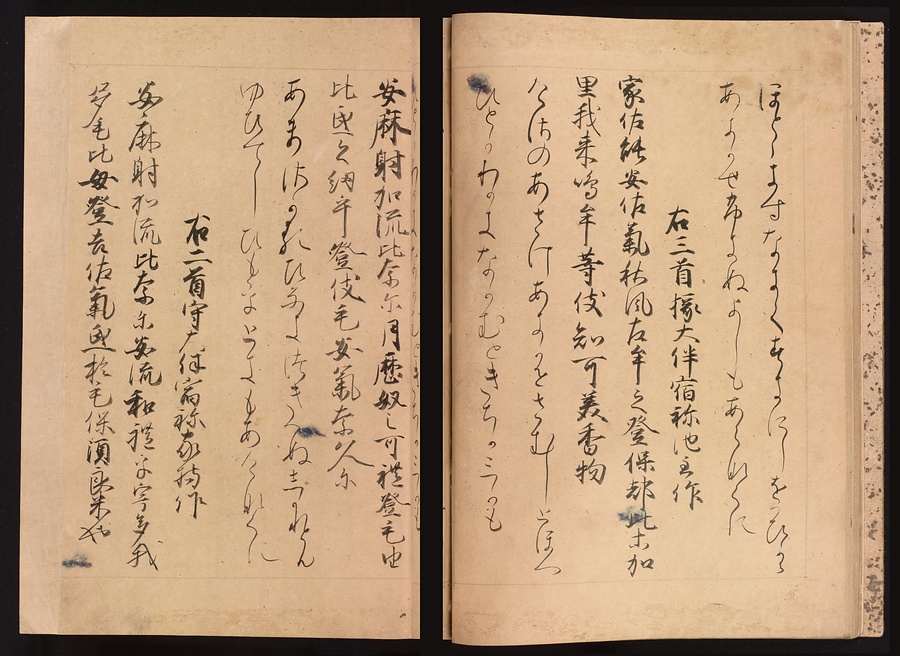 ほとゝきすなきてすきにしをかひから
あきかせふきぬよしもあらなくに
右三首掾大伴宿祢池主作
家佐能安佐氣秋風左牟之登保都比等加
里我来鳴牟等伎知可美香物
けさのあさけあきかせさむしとほつ
ひとかりかきなかむときちかみかも
安麻射加流比奈尓月歴奴之可禮登毛由
比氐之紐乎登伎毛安氣奈久尓
あまさかるひなにつきへぬしかれとも
ゆひてしひもをときもあけなくに
右二首守大伴宿祢家持作
安麻射加流比奈尓安流和禮乎宇多我
多毛比母登吉佐氣氐於毛保須良米也